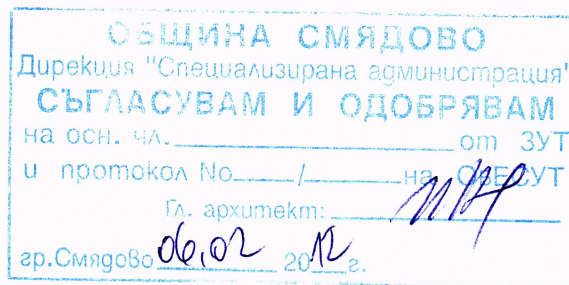 ОБЩИНА СМЯДОВО
Дирекция "Специализирана администрация"
СЪГЛАСУВАМ И ОДОБРЯВАМ
на осн. чл. от ЗУТ
и протокол No / на ОбЕСУТ
Гл. архитект:
гр.Смядово 06,02 2012 г.